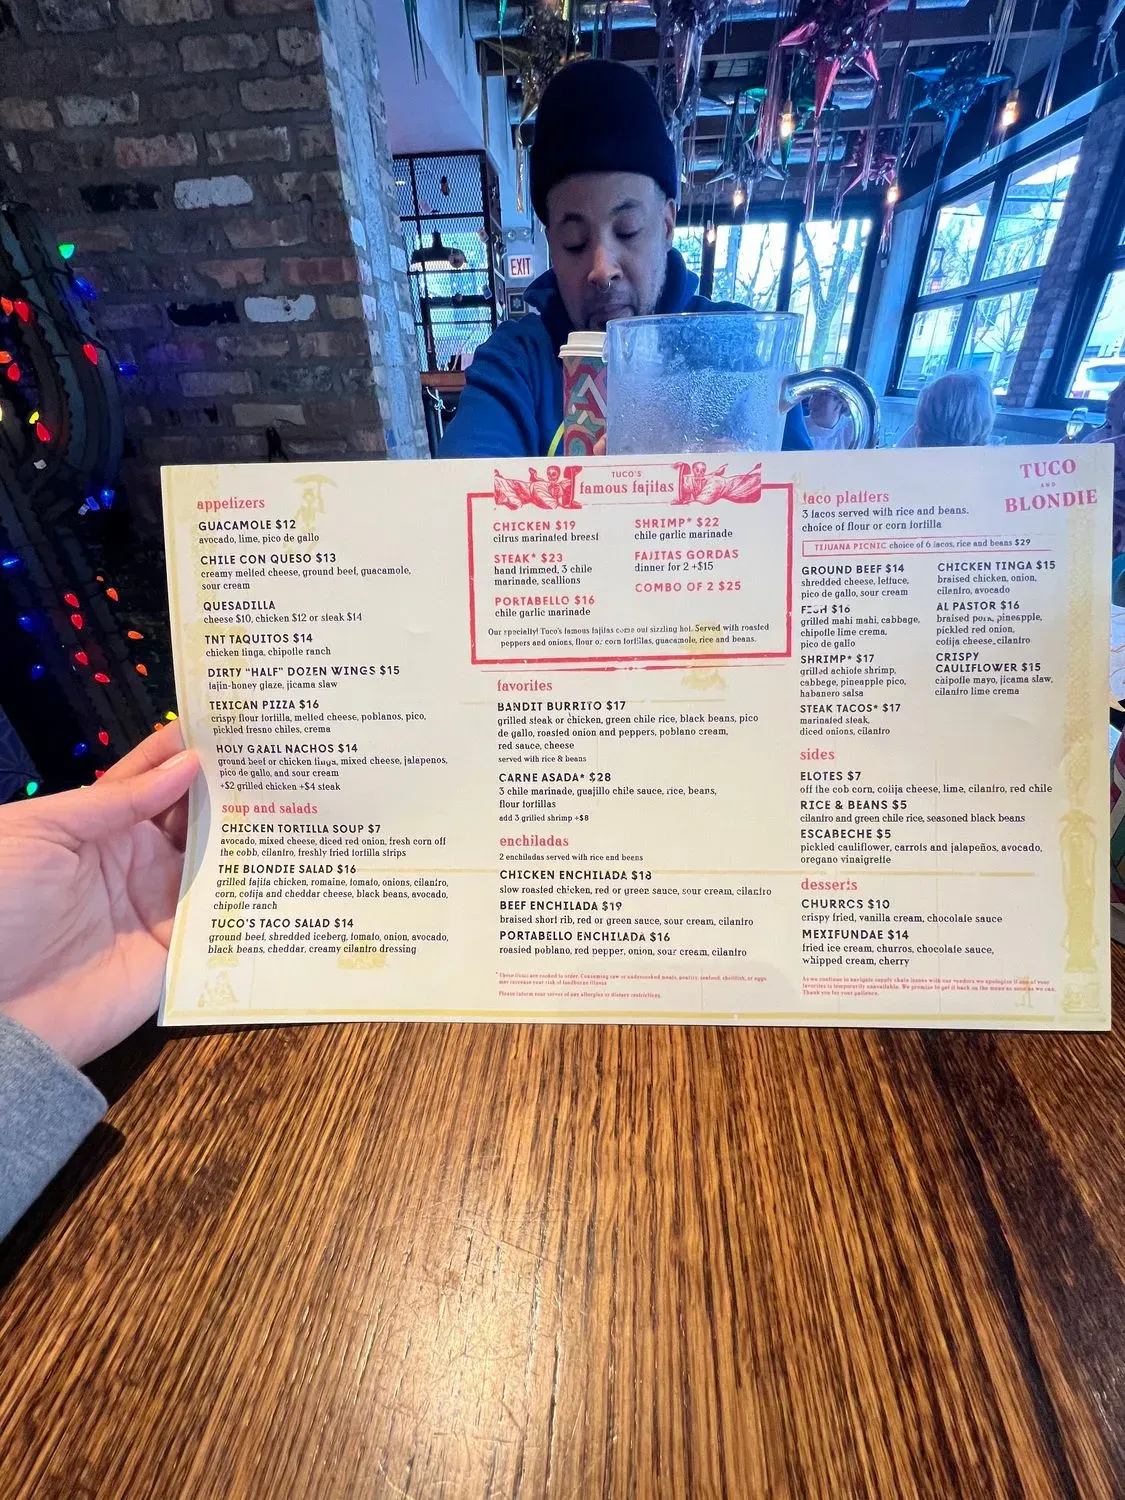 EXIT
TUCO
AND
BLONDIE
appetizers
GUACAMOLE $12
avocado, lime, pico de gallo
CHILE CON QUESO $13
creamy melted cheese, ground beef, guacamole,
sour cream
QUESADILLA
cheese $10, chicken $12 or steak $14
TNT TAQUITOS $14
chicken tinga, chipotle ranch
DIRTY "HALF" DOZEN WINGS $15
fajin-honey glaze, jicama slaw
TEXICAN PIZZA $16
crispy flour tortilla, melted cheese, poblanos, pico,
pickled fresno chiles, crema
HOLY GRAIL NACHOS $14
ground beef or chicken tinga, mixed cheese, jalapenos,
pico de gallo, and sour cream
+$2 grilled chicken +$4 steak
soup and salads
CHICKEN TORTILLA SOUP $7
avocado, mixed cheese, diced red onion, fresh corn off
the cobb, cilantro, freshly fried tortilla strips
THE BLONDIE SALAD $16
grilled fajita chicken, romaine, tomato, onions, cilantro,
corn, cotija and cheddar cheese, black beans, avocado,
chipotle ranch
TUCO'S TACO SALAD $14
ground beef, shredded iceberg, tomato, onion, avocado,
black beans, cheddar, creamy cilantro dressing
TUCO'S
famous fajitas
CHICKEN $19
citrus marinated breast
STEAK* $23
hand trimmed, 3 chile
marinade, scallions
PORTABELLO $16
chile garlic marinade
SHRIMP* $22
chile garlic marinade
FAJITAS GORDAS
dinner for 2 +$15
COMBO OF 2 $25
Our specialty! Tuco's famous fajitas come out sizzling hot. Served with roasted
peppers and onions, flour or corn tortillas, guacamole, rice and beans.
favorites
BANDIT BURRITO $17
grilled steak or chicken, green chile rice, black beans, pico
de gallo, roasted onion and peppers, poblano cream,
red sauce, cheese
served with rice & beans
CARNE ASADA* $28
3 chile marinade, guajillo chile sauce, rice, beans,
flour tortillas
add 3 grilled shrimp +$8
enchiladas
2 enchiladas served with rice and beans
CHICKEN ENCHILADA $18
slow roasted chicken, red or green sauce, sour cream, cilantro
BEEF ENCHILADA $19
braised short rib, red or green sauce, sour cream, cilantro
PORTABELLO ENCHILADA $16
roasted poblano, red pepper, onion, sour cream, cilantro
* These items are cooked to order. Consuming raw or undercooked meats, poultry, seafood, shellfish, or eggs
may increase your risk of foodborne illness
Please inform your server of any allergies or dietary restrictions.
taco platters
3 tacos served with rice and beans.
choice of flour or corn tortilla
TIJUANA PICNIC choice of 6 tacos, rice and beans $29
GROUND BEEF $14
shredded cheese, lettuce,
pico de gallo, sour cream
FISH $16
grilled mahi mahi, cabbage,
chipotle lime crema,
pico de gallo
SHRIMP* $17
grilled achiote shrimp,
cabbage, pineapple pico,
habanero salsa
STEAK TACOS* $17
marinated steak,
diced onions, cilantro
CHICKEN TINGA $15
braised chicken, onion,
cilantro, avocado
AL PASTOR $16
braised pork, pineapple,
pickled red onion,
cotija cheese, cilantro
CRISPY
CAULIFLOWER $15
chipotle mayo, jicama slaw,
cilantro lime crema
sides
ELOTES $7
off the cob corn, cotija cheese, lime, cilantro, red chile
RICE & BEANS $5
cilantro and green chile rice, seasoned black beans
ESCABECHE $5
pickled cauliflower, carrots and jalapeños, avocado,
oregano vinaigrette
desserts
CHURROS $10
crispy fried, vanilla cream, chocolate sauce
MEXIFUNDAE $14
fried ice cream, churros, chocolate sauce,
whipped cream, cherry
As we continue to navigate supply chain issues with our vendors we apologize if one of your
favorites is temporarily unavailable. We promise to get it back on the menu as soon as we can.
Thank you for your patience.